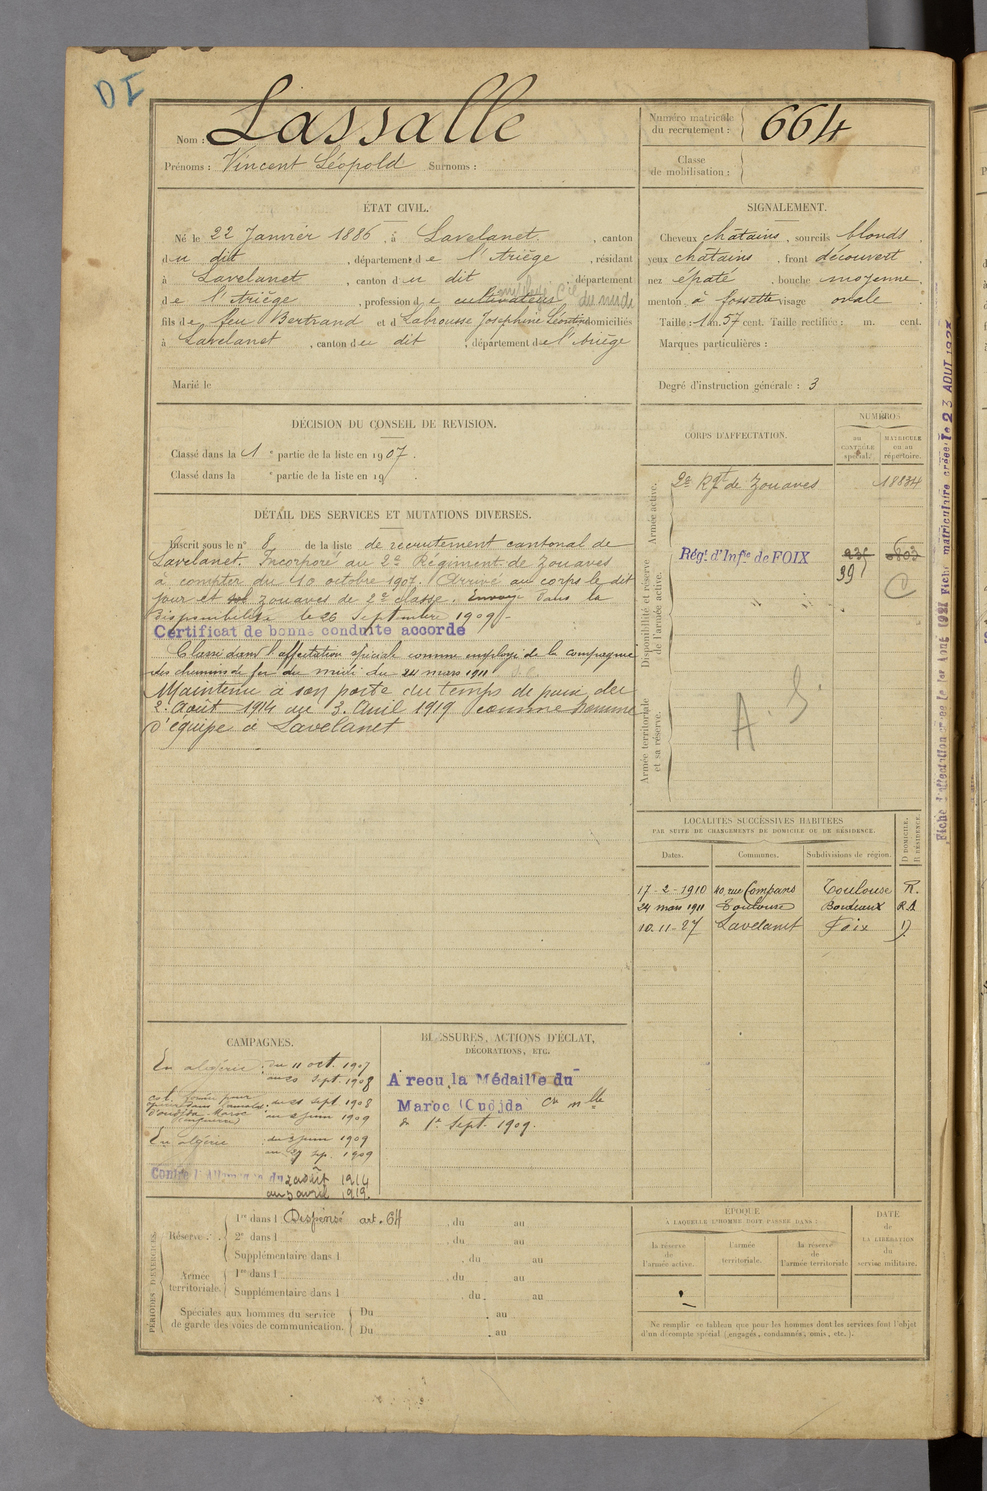 DI
Nom : Lassalle
Prénoms : Vincent Léopold Surnoms :
Numéro matricule du recrutement : 664
Classe de mobilisation :
ÉTAT CIVIL.
Né le 22 Janvier 1886, à Lavelanet, canton
du dit, département de l'Ariège, résidant
à Lavelanet, canton du dit, département
de l'Ariège, profession de cultivateur, employé du midi
fils de feu Bertrand et d Labrousse Joséphine Léontine domiciliés
à Lavelanet, canton du dit, département de l'Ariège
Marié le
SIGNALEMENT.
Cheveux châtains, sourcils blonds,
yeux châtains, front découvert,
nez épaté, bouche moyenne,
menton à fossette visage ovale.
Taille : 1 m. 57 cent. Taille rectifiée : m. cent.
Marques particulières :
Degré d'instruction générale : 3
DÉCISION DU CONSEIL DE REVISION.
Classé dans la 1e partie de la liste en 1907.
Classé dans la e partie de la liste en 19
DÉTAIL DES SERVICES ET MUTATIONS DIVERSES.
Inscrit sous le n° 8 de la liste de recrutement cantonal de
Lavelanet. Incorporé au 2e Régiment de Zouaves
à compter du 10 octobre 1907. Arrivé au corps le dit
jour et zouaves de 2e classe. Envoyé dans la
disponibilité le 26 Septembre 1909.-
Certificat de bonne conduite accordé
Classé dans l'affectation spéciale comme employé de la compagnie
des chemins de fer du midi du 24 mars 1911
Maintenu à son poste du temps de paix du
2 Août 1914 au 3 Avril 1919 comme homme
d'équipe à Lavelanet
CORPS D'AFFECTATION.
NUMÉROS
AU CONTRÔLE spécial.
MATRICULE ou au répertoire.
Armée active.
2e Rgt de Zouaves 18834
Disponibilité et réserve de l'armée active.
Régt d'Infie de FOIX
391
C
Armée territoriale et sa réserve.
A. S.
LOCALITÉS SUCCESSIVES HABITÉES
PAR SUITE DE CHANGEMENTS DE DOMICILE OU DE RÉSIDENCE.
Dates. Communes. Subdivisions de région. D DOMICILE. R RÉSIDENCE.
17-2-1910 40, rue Compans Toulouse R.
24 mars 1911 Toulouse Bordeaux R.D
10.11-27 Lavelanet Foix D
CAMPAGNES.
En algérie : du 11 oct. 1907
au 20 sept. 1908
d'oudjda Maroc
du 21 sept 1908
au 2 juin 1909
En algérie du 3 juin 1909
au 29 sep. 1909
Contre l'Allemagne du 2 août 1914
au 3 avril 1919.
BLESSURES, ACTIONS D'ÉCLAT,
DÉCORATIONS, ETC.
A reçu la Médaille du
Maroc (Oudjda
1er Sept. 1909.
PÉRIODES D'EXERCICES.
Réserve.
1re dans l Dispensé art. 64, du au
2e dans l, du au
Supplémentaire dans l, du au
Armée territoriale.
1re dans l, du au
Supplémentaire dans l, du au
Spéciales aux hommes du service de garde des voies de communication.
Du, au
Du, au
ÉPOQUE
À LAQUELLE L'HOMME DOIT PASSER DANS :
la réserve de l'armée active.
l'armée territoriale.
la réserve de l'armée territoriale
DATE DE LA LIBÉRATION du service militaire.
Ne remplir ce tableau que pour les hommes dont les services font l'objet
d'un décompte spécial (engagés, condamnés, omis, etc.).